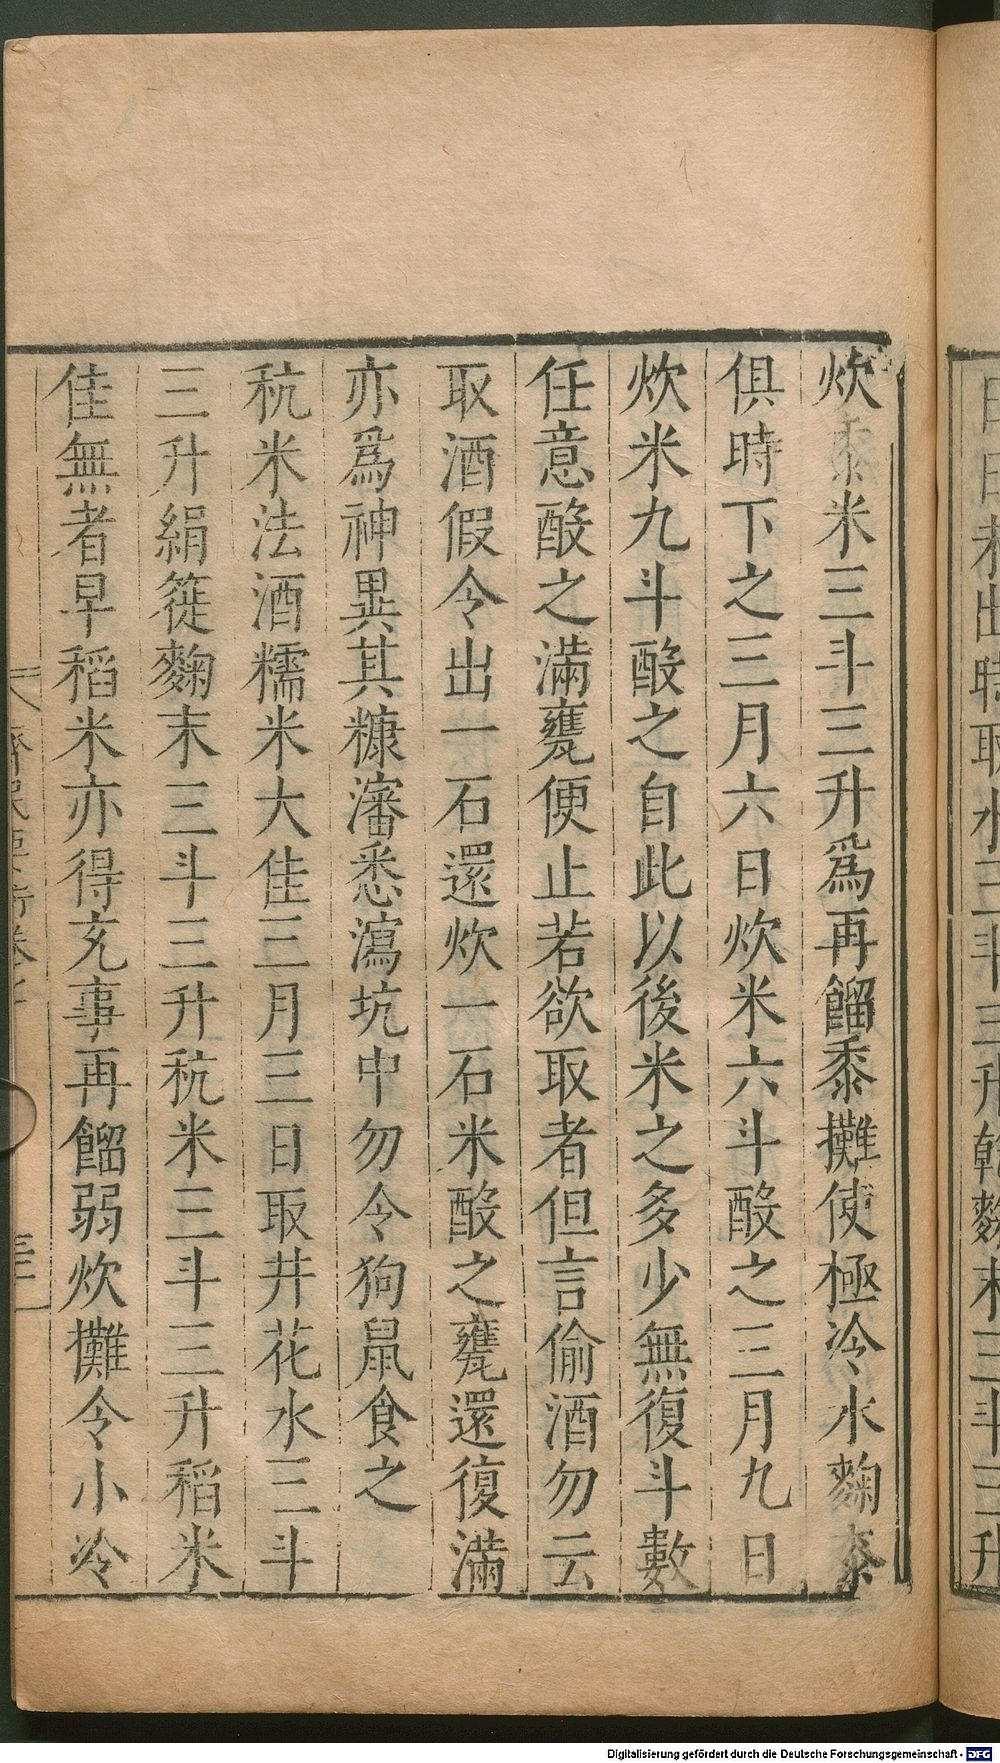 炊黍米三斗三升爲再餾黍攤使極冷水麴黍
俱時下之三月六日炊米六斗酘之三月九日
炊米九斗酘之自此以後米之多少無復斗數
任意酘之滿甕便止若欲取者但言偷酒勿云
取酒假令出一石還炊一石米酘之甕還復滿
亦爲神異其糠瀋悉瀉坑中勿令狗鼠食之
秔米法酒糯米大佳三月三日取井花水三斗
三升絹簁麴末三斗三升秔米三斗三升稻米
佳無者早稻米亦得充事再餾弱炊攤令小冷
齊民要術卷七
日日未出時取水三斗三升乾麴末三斗三升
Digitalisierung gefördert durch die Deutsche Forschungsgemeinschaft - DFG